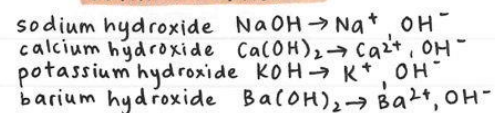 sodium hydroxide NaOH → Na⁺, OH⁻
calcium hydroxide Ca(OH)₂ → Ca²⁺, OH⁻
potassium hydroxide KOH → K⁺, OH⁻
barium hydroxide Ba(OH)₂ → Ba²⁺, OH⁻